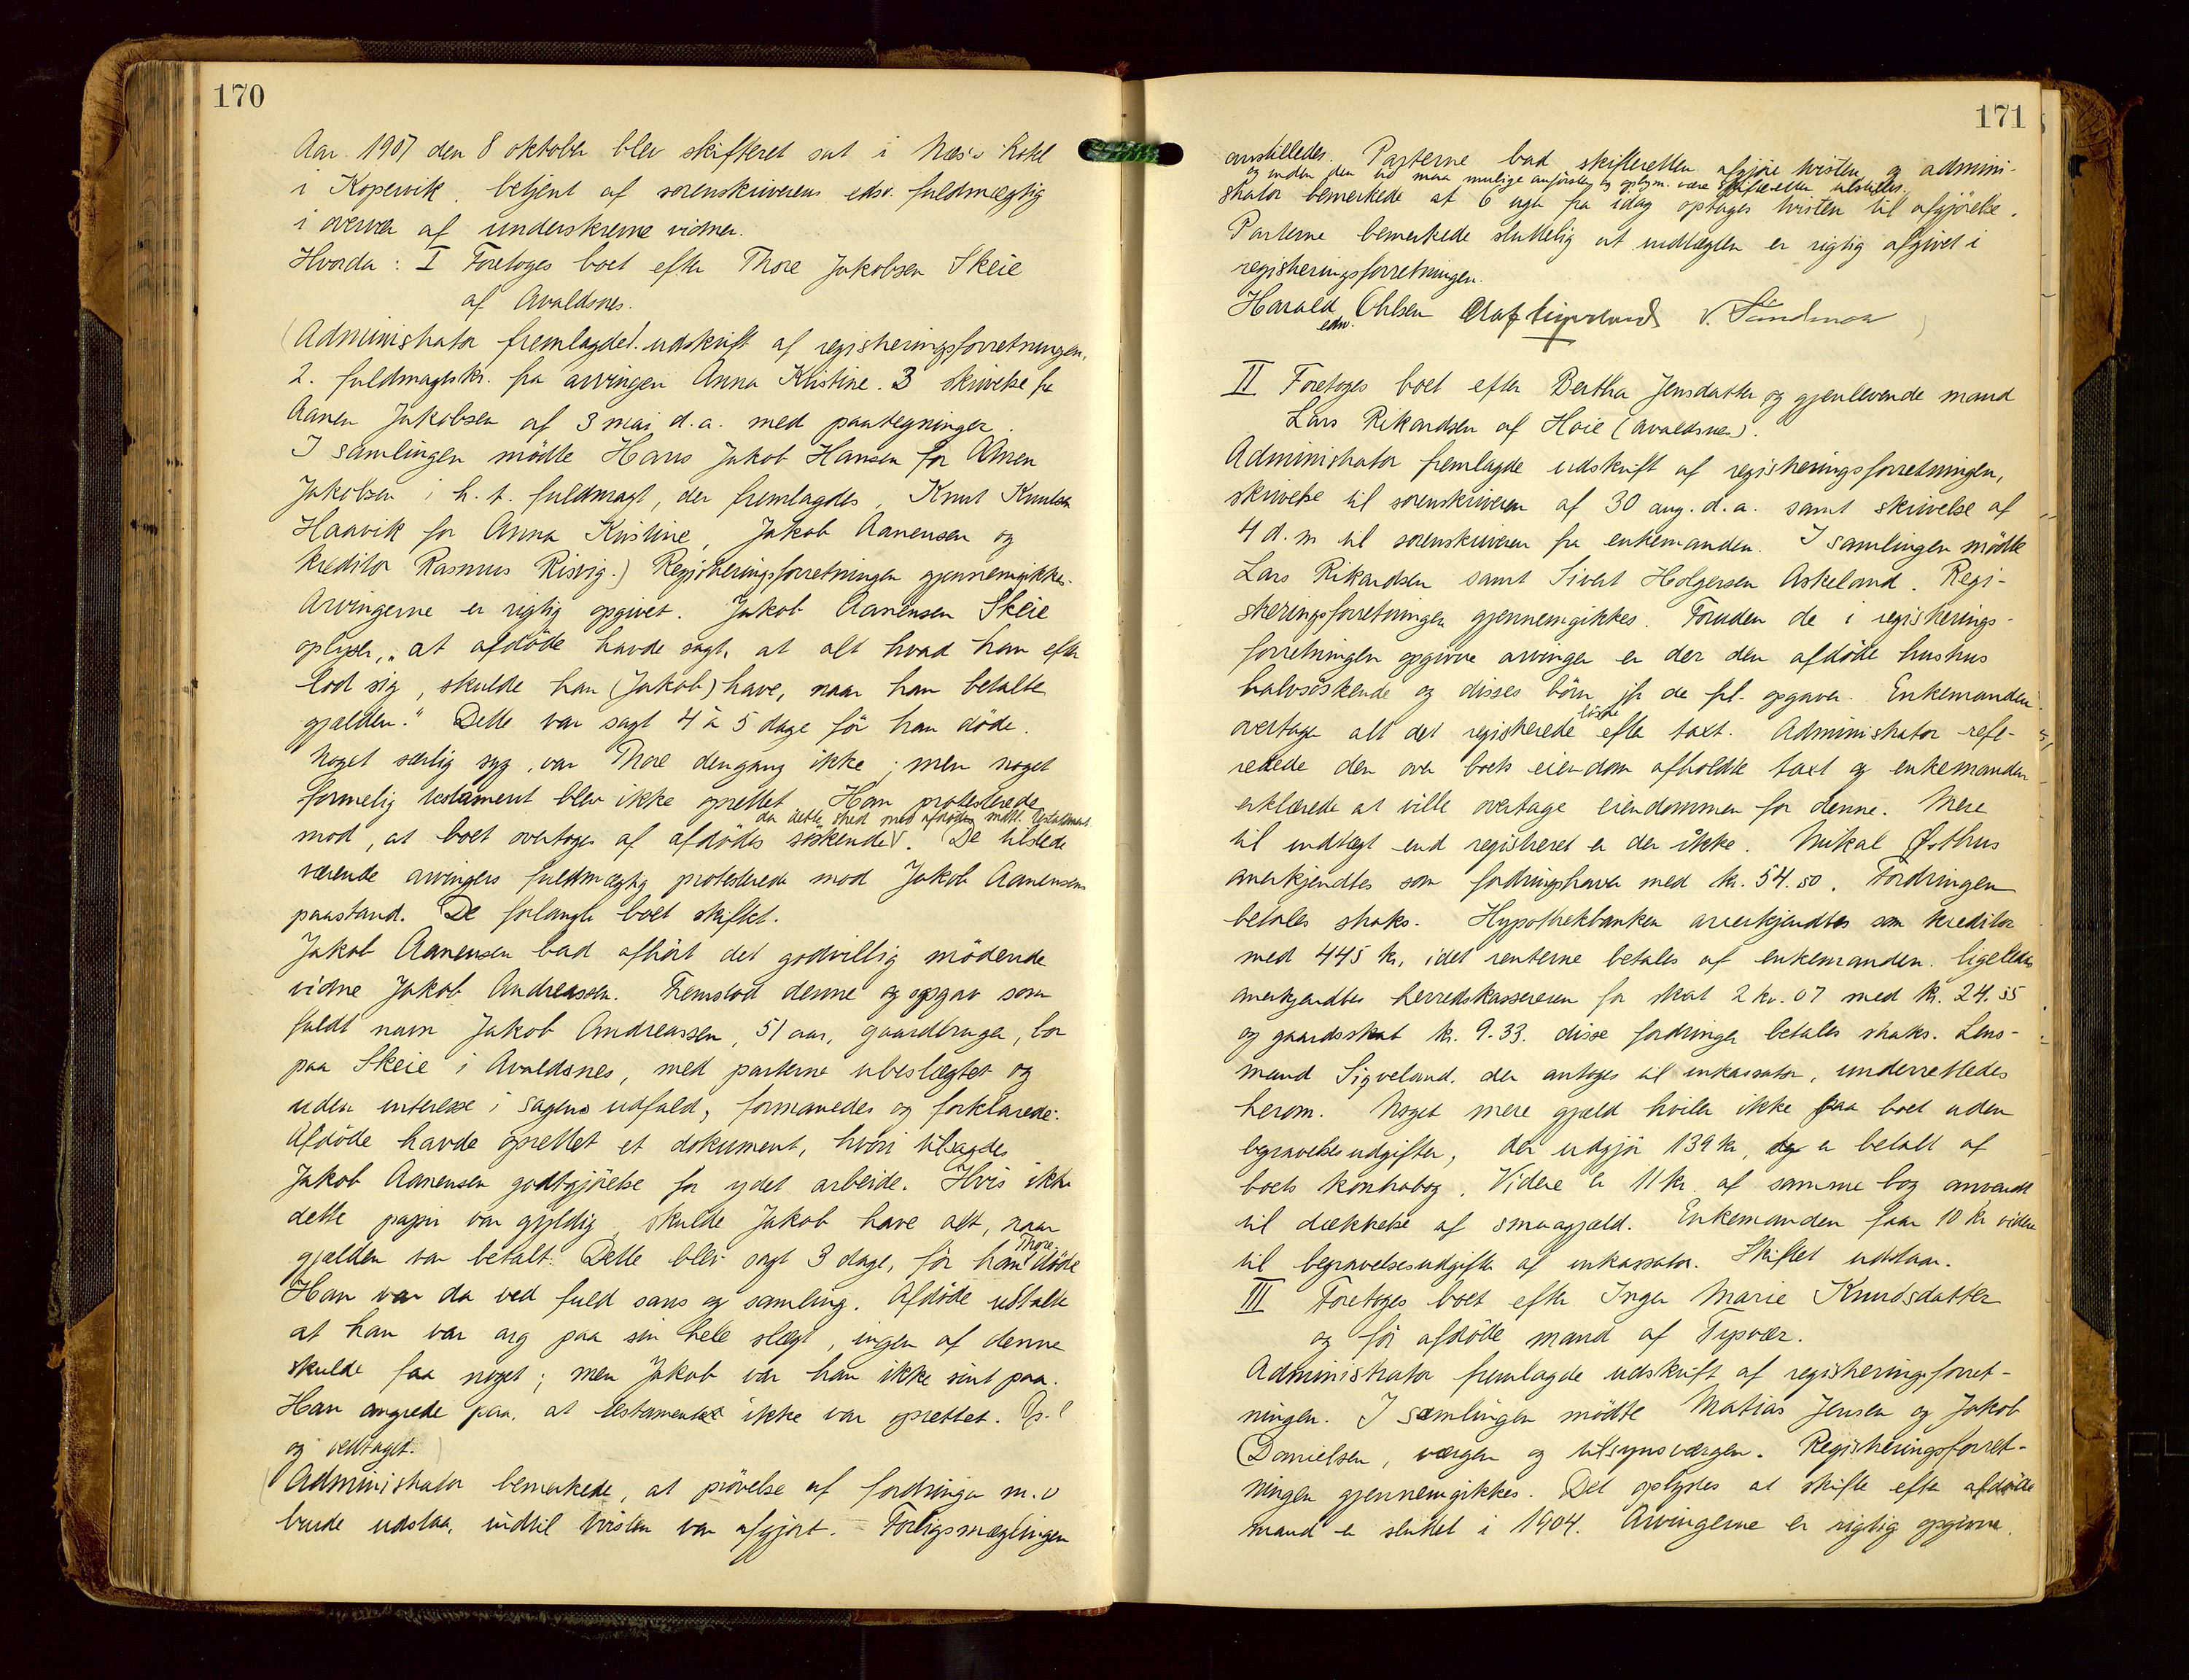 170
Aar 1907 den 8 oktober blev skifteret sat i Næs's hotel
i Kopervik, betjent af sorenskriverens edsv. fuldmægtig
i overvær af underskrevne vidner.
Hvorda: I Foretoges boet efter Thore Jakobsen Skeie
af Avaldsnes.
(Administrator fremlagde 1. udskrift af registreringsforretningen,
2. fuldmagtskr. fra arvingen Anna Kristine. 3 skrivelse fra
Aanen Jakobsen af 3 mai d.a. med paategninger.
I samlingen mödte Hans Jakob Hansen for Aanen
Jakobsen i h. t. fuldmagt, der fremlagdes, Knut Knutsen
Haavik for Anna Kristine, Jakob Aanensen og
kreditor Rasmus Risvig.) Registreringsforretningen gjennemgikkes.
Arvingerne er rigtig opgivet. Jakob Aanensen Skeie
oplyser, "at afdöde havde sagt, at alt hvad han efter
lod sig, skulde han (Jakob) have, naar han betalte
gjælden." Dette var sagt 4 à 5 dage för han döde.
Noget særlig syg, var Thore dengang ikke; men noget
formelig testament blev ikke oprettet. Han protesterede
da dette stred mod afdödes mdtl. testament
mod, at boet overtoges af afdödes söskende V. De tilstede
værende arvingers fuldmægtig protesterede mod Jakob Aanensens
paastand. De forlangte boet skiftet.
Jakob Aanensen bad afhört det godvillig mödende
vidne Jakob Andreassen. Fremstod denne og opgav som
fuldt navn Jakob Andreassen, 51 aar, gaardbruger, bor
paa Skeie i Avaldsnes, med parterne ubeslægtet og
uden interesse i sagens udfald, formanedes og forklarede:
Afdöde havde oprettet et dokument, hvori tilsagdes
Jakob Aanensen godtgjörelse for ydet arbeide. Hvis ikke
dette papir var gyldig, skulde Jakob have alt, naar
gjælden var betalt. Dette blev sagt 3 dage, för han Thore döde
Han var da ved fuld sans og samling. Afdöde udtalte
at han var arg paa sin hele slægt, ingen af denne
skulde faa noget; men Jakob var han ikke sint paa.
Han angrede paa, at testamentet ikke var oprettet. Op.l
og vedtaget.)
(Administrator bemerkede, at prövelse af fordringer m.v
burde udstaa, indtil tvisten var afgjort. Forligsmæglingen
171
anstilledes. Parterne bad skifteretten afgjöre tvisten, og admini-
og inden den tid maa mulige anförsler og oplysn. være skifteretten tilstillet.
strator bemerkede at 6 uger fra idag optages tvisten til afgjörelse.
Parterne bemerkede sluttelig at indtægten er rigtig afgivet i
registreringsforretningen.
Harald Ohlsen
edsv.
II Foretoges boet efter Bertha Jensdatter og gjenlevende mand
Lars Rikardsen af Höie (Avaldsnes).
Administrator fremlagde udskrift af registreringsforretningen,
skrivelse til sorenskriveren af 30 aug. d.a. samt skrivelse af
4 d.m til sorenskriveren fra enkemanden. I samlingen mödte
Lars Rikardsen samt Sivert Holgersen Askeland. Regi-
streringsforretningen gjennemgikkes. Foruden de i registrerings-
forretningen opgivne arvinger er der den afdöde hustrus
halvsöskende og disses börn jfr de frl. opgaver. Enkemanden
overtager alt det registrerede lösöre efter taxt. Administrator refe-
rerede den over boets eiendom afholdte taxt og enkemanden
erklærede at ville overtage eiendommen for denne. Mere
til indtægt end registreret er der ikke. Mikal Østhus
anerkjendtes som fordringshaver med kr. 54.50. Fordringen
betales straks. Hypothekbanken anerkjendtes som kreditor
med 445 kr, idet renterne betales af enkemanden. Ligeledes
anerkjendtes herredskassereren for skat 2 kv. 07 med kr. 24.55
og gaardsskat kr. 9.33. disse fordringer betales straks. Lens-
mand Sigveland, der antoges til inkassator, underrettedes
herom. Noget mere gjæld hviler ikke paa boet uden
begravelsesudgifter, der udgjör 139 kr, og er betalt af
boets kontrabog. Videre er 11 kr. af samme bog anvendt
til dækkelse af smaagjæld. Enkemanden faar 10 kr videre
til begravelsesudgifter af inkassator. Skiftet udstaar.
III Foretoges boet efter Inger Marie Knudsdatter
og för afdöde mand af Tysvær.
Administrator fremlagde udskrift af registreringsforret-
ningen. I samlingen mödte Matias Jensen og Jakob
Danielsen, værgen og tilsynsværgen. Registreringsforret-
ningen gjennemgikkes. Det oplystes at skifte efter afdöde
mand er sluttet i 1904. Arvingerne er rigtig opgivne.